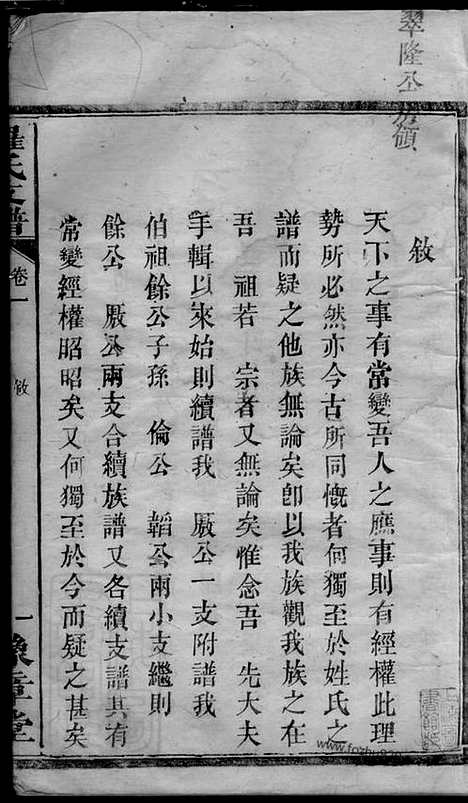 翠隆公房領
敘
天下之事有常變吾人之應事則有經權此理
勢所必然亦今古所同慨者何獨至於姓氏之
譜而疑之他族無論矣卽以我族觀我族之在
吾 祖若 宗者又無論矣惟念吾 先大夫
手輯以來始則續譜我 厰公一支附譜我
伯祖餘公子孫 倫公 韜公兩小支繼則
餘公 厰公兩支合續族譜又各續支譜其有
常變經權昭昭矣又何獨至於今而疑之甚矣
羅氏支譜
卷一
敘
一
豫章堂